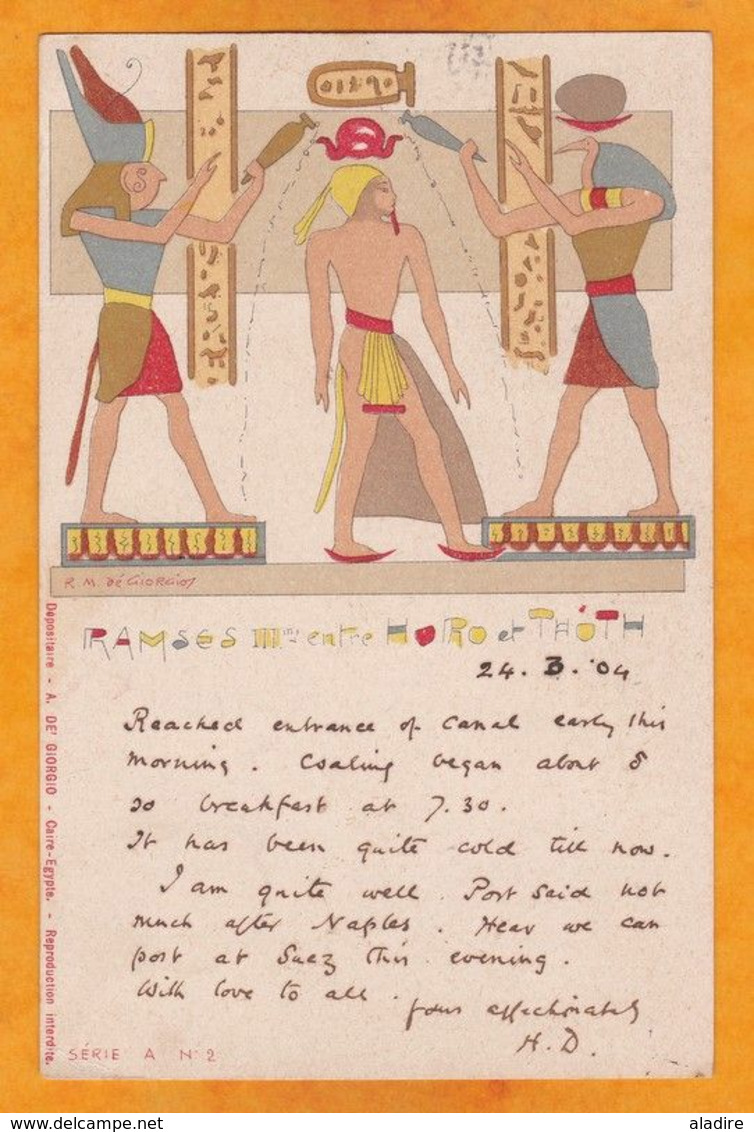 R. M. dé GIORGIOS
RAMSES IIIme entre HORO et THOTH
24. 3. '04
Reached entrance of Canal early this
morning. Coaling began about 5
so breakfast at 7.30.
It has been quite cold till now.
I am quite well. Port Said not
much after Naples. Hear we can
post at Suez this evening.
With love to all.
Yours affectionately
H. D.
Dépositaire - A. DE' GIORGIO - Caire-Egypte. - Reproduction interdite.
SÉRIE A Nº 2
© aladire